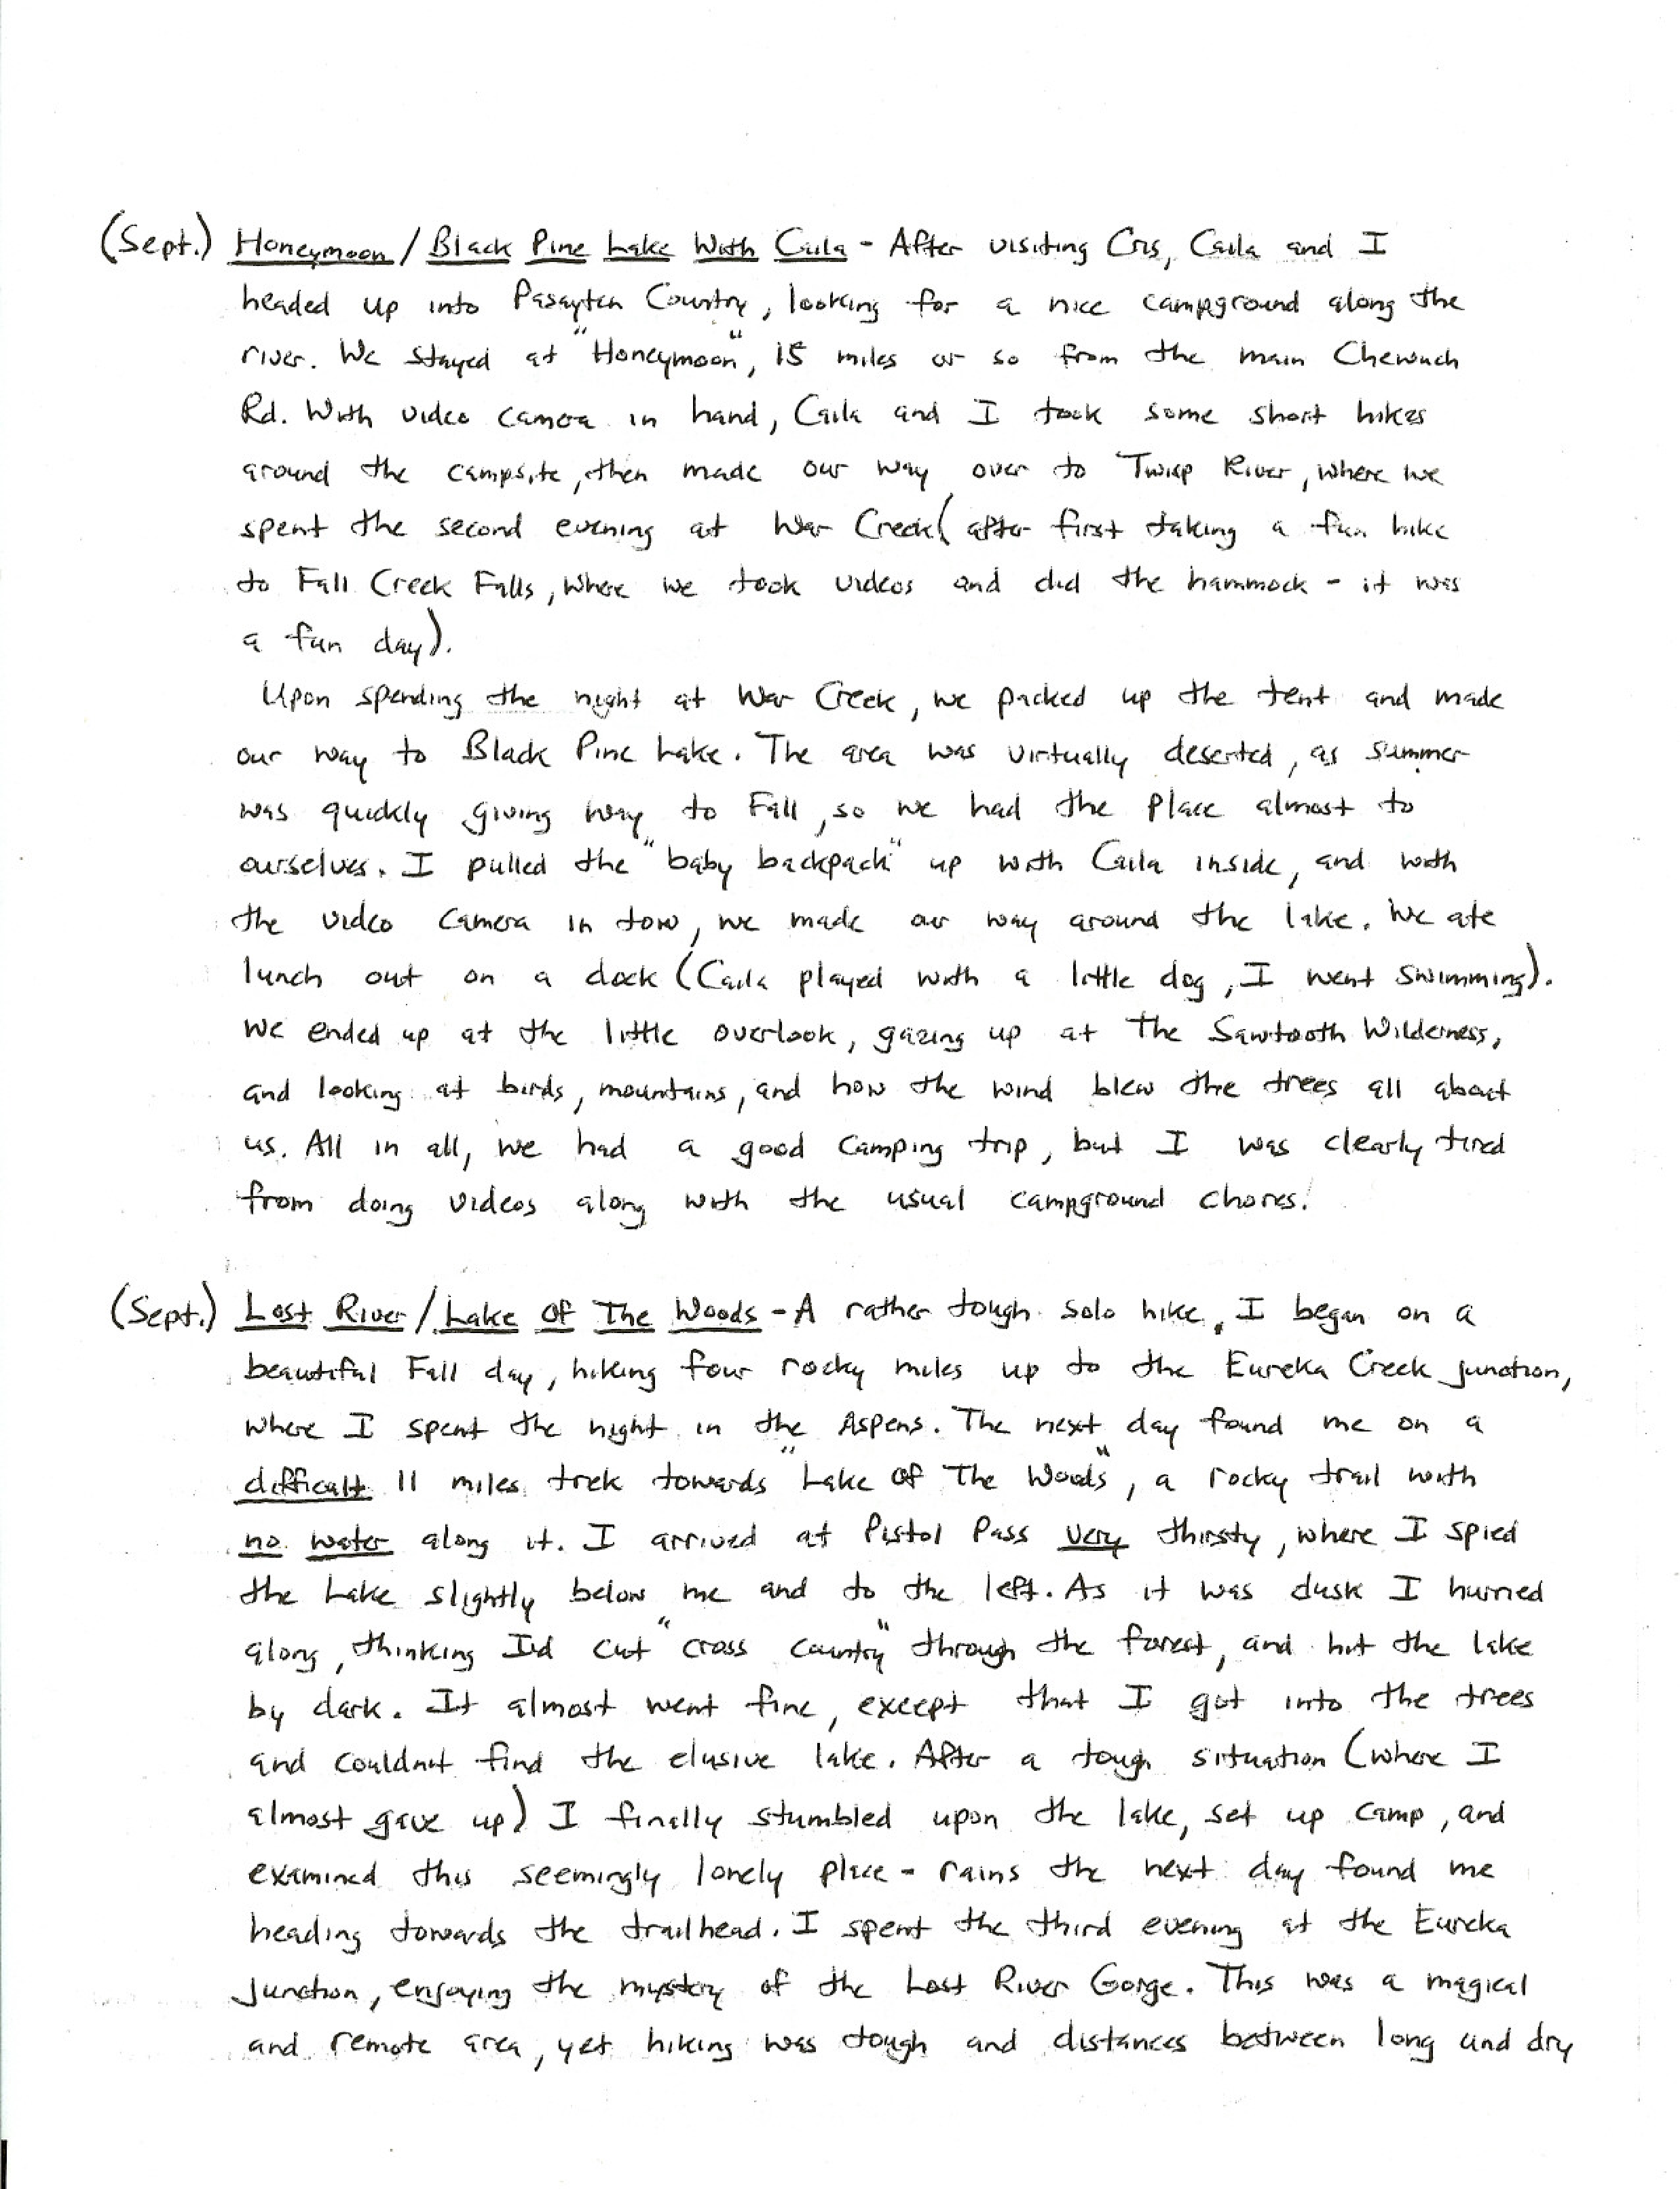 (Sept.) Honeymoon / Black Pine Lake With Caila - After visiting Cris, Caila and I
headed up into Pasayten Country, looking for a nice campground along the
river. We stayed at "Honeymoon", 15 miles or so from the main Chewuch
Rd. With video camera in hand, Caila and I took some short hikes
around the campsite, then made our way over to Twisp River, where we
spent the second evening at War Creek (after first taking a fun hike
to Fall Creek Falls, where we took videos and did the hammock - it was
a fun day).
Upon spending the night at War Creek, we packed up the tent and made
our way to Black Pine Lake. The area was virtually deserted, as summer
was quickly giving way to Fall, so we had the place almost to
ourselves. I pulled the "baby backpack" up with Caila inside, and with
the video camera in tow, we made our way around the lake. We ate
lunch out on a dock (Caila played with a little dog, I went swimming).
We ended up at the little overlook, gazing up at The Sawtooth Wilderness,
and looking at birds, mountains, and how the wind blew the trees all about
us. All in all, we had a good camping trip, but I was clearly tired
from doing videos along with the usual campground chores!
(Sept.) Lost River / Lake Of The Woods - A rather tough solo hike, I began on a
beautiful Fall day, hiking four rocky miles up to the Eureka Creek junction,
where I spent the night in the Aspens. The next day found me on a
difficult 11 miles trek towards "Lake Of The Woods", a rocky trail with
no water along it. I arrived at Pistol Pass very thirsty, where I spied
the Lake slightly below me and to the left. As it was dusk I hurried
along, thinking I'd cut "cross country" through the forest, and hit the lake
by dark. It almost went fine, except that I got into the trees
and couldnt find the elusive lake. After a tough situation (where I
almost gave up) I finally stumbled upon the lake, set up camp, and
examined this seemingly lonely place - rains the next day found me
heading towards the trailhead. I spent the third evening at the Eureka
Junction, enjoying the mystery of the Lost River Gorge. This was a magical
and remote area, yet hiking was tough and distances between long and dry